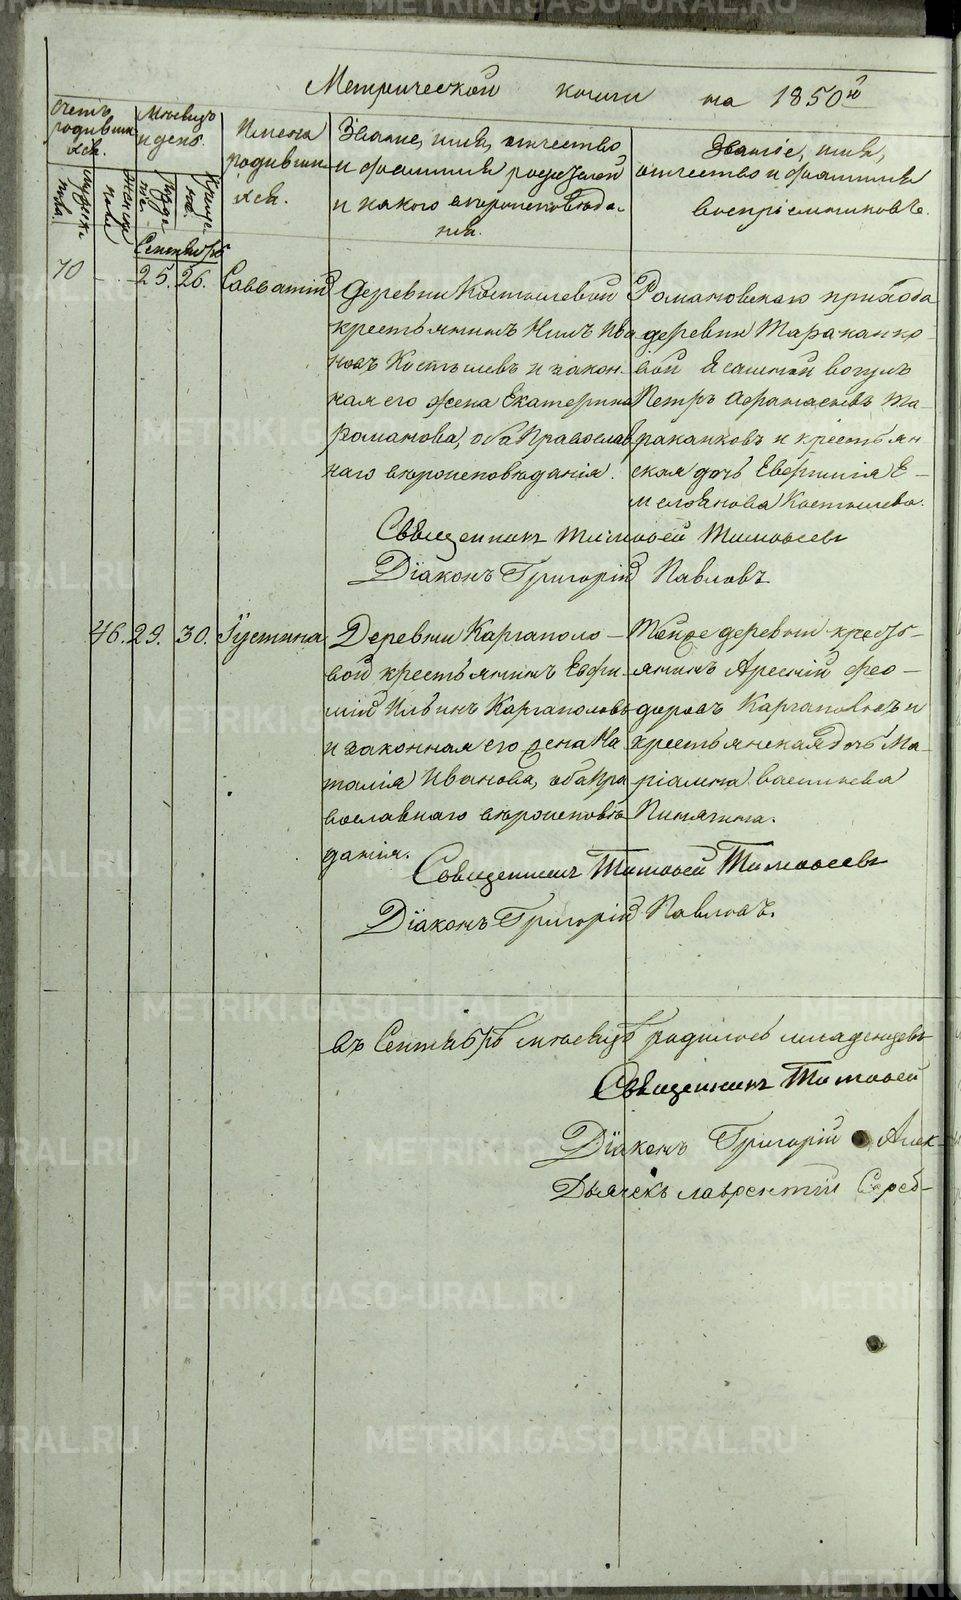 METRIKI.GASO-URAL.RU
Метрической книги на 1850й
Счетъ родившихся.
Мѣсяцъ и день.
Имена родившихся.
Званіе, имя, отчество
и фамилія родителей
и какого вѣроисповѣда-
нія.
Званіе, имя,
отчество и фамилія
воспріемниковъ.
Мужеска
Женска
Сентябрь
70 25. 26. Савватій
Деревни Костылевой
крестьянинъ Нилъ Ива
новъ Костылевъ и закон-
ная его жена Екатерина
Романова, оба Православ
наго вѣроисповѣданія.
Романовскаго прихода
деревни Тараканко-
вой Ясашной вогулъ
Петръ Афанасьевъ Та-
раканковъ и крестьян
ская дочь Евфимія Е-
мельянова Костылева.
Священникъ Тимофей Тимофеевъ
Діаконъ Григорій Павловъ
76. 29. 30. Іустина
Деревни Каргаполо-
вой крестьянинъ Евфи-
мій Ильинъ Каргаполовъ
и законная его жена На
талія Иванова, оба Пра
вославнаго вѣроисповѣ
данія.
Тойже деревни кресть-
янинъ Арсений Фео-
доровъ Каргаполовъ и
крестьянская дочь Ма-
ріамна Васильева
Пинягина.
Священникъ Тимофей Тимофеевъ
Діаконъ Григорій Павловъ.
въ Сентябрѣ мѣсяцѣ родилось младенцевъ
Священникъ Тимофей
Діаконъ Григорій Алек-
Дьячекъ Лаврентій Сереб-